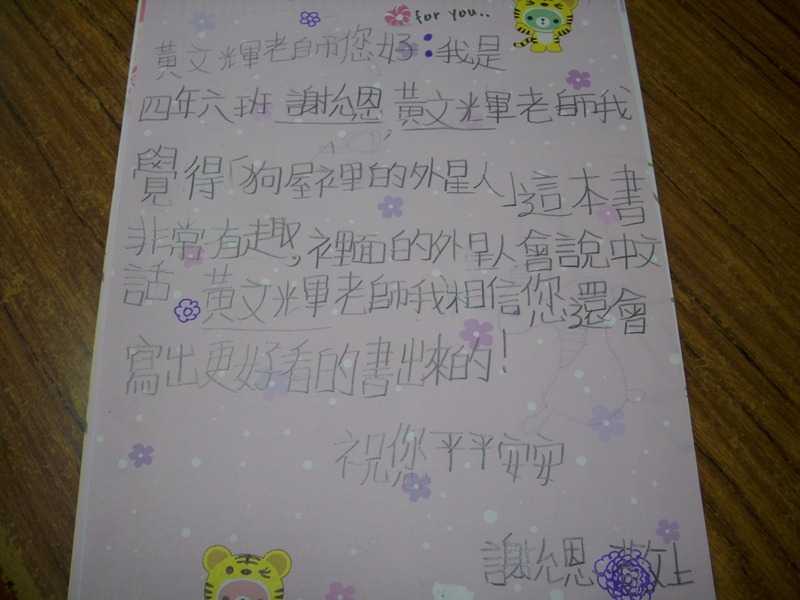 for you..
黃文輝老師您好：我是
四年六班 謝紾恩，黃文輝老師我
覺得「狗屋裡的外星人」這本書
非常有趣，裡面的外星人會說中文
話 黃文輝老師我相信您還會
寫出更好看的書出來的！
祝您平平安安
謝紾恩 敬上